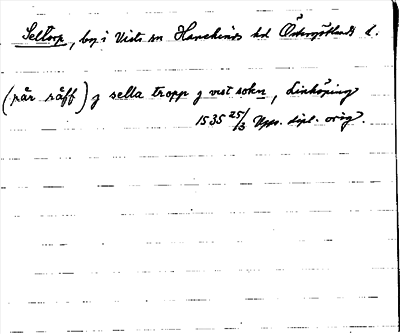 Seltorp, by i Vists sn Hanekinds hd Östergötlands l.
(när räff) j sella tropp j vist sokn, Linköping
1535 25/3 Upps. dipl. orig.